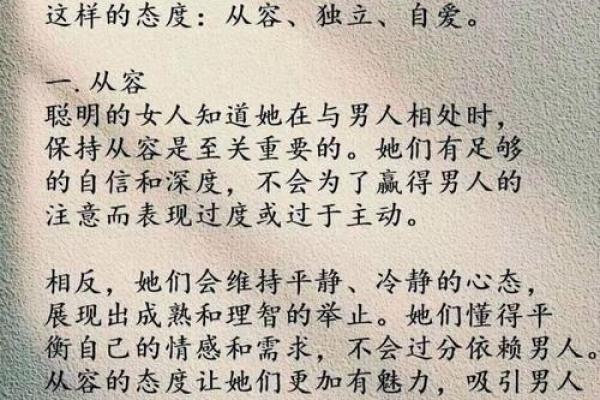 这样的态度：从容、独立、自爱。
一.从容
聪明的女人知道她在与男人相处时，
保持从容是至关重要的。她们有足够
的自信和深度，不会为了赢得男人的
注意而表现过度或过于主动。
相反，她们会维持平静、冷静的心态，
展现出成熟和理智的举止。她们懂得平
衡自己的情感和需求，不会过分依赖男人。
从容的态度让她们更加有魅力，吸引男人